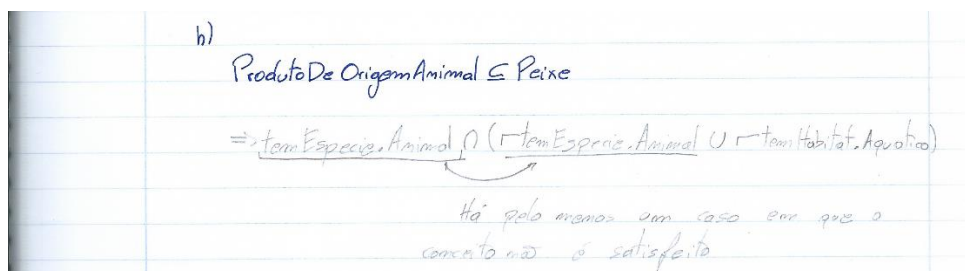 h)
ProdutoDeOrigemAnimal ⊆ Peixe
=> temEspecie.Animal ∩ (¬temEspecie.Animal ∪ ¬temHabitat.Aquatico)
Há pelo menos um caso em que o
conceito não é satisfeito